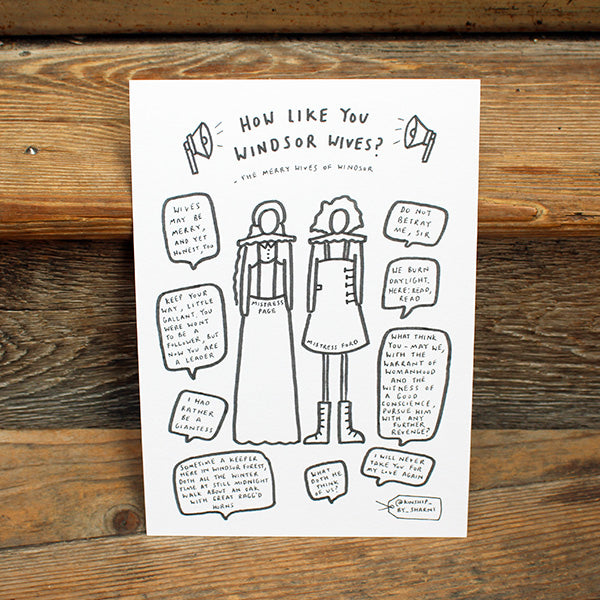 HOW LIKE YOU
WINDSOR WIVES?
- THE MERRY WIVES OF WINDSOR
WIVES
MAY BE
MERRY,
AND YET
HONEST, TOO
DO NOT
BETRAY
ME, SIR
WE BURN
DAYLIGHT.
HERE: READ,
READ
KEEP YOUR
WAY, LITTLE
GALLANT. YOU
WERE WONT
TO BE A
FOLLOWER, BUT
NOW YOU ARE
A LEADER
MISTRESS
PAGE
MISTRESS FORD
WHAT THINK
YOU - MAY WE,
WITH THE
WARRANT OF
WOMANHOOD
AND THE
WITNESS OF
A GOOD
CONSCIENCE,
PURSUE HIM
WITH ANY
FURTHER
REVENGE?
I HAD
RATHER
BE A
GIANTESS
SOMETIME A KEEPER
HERE IN WINDSOR FOREST,
DOTH ALL THE WINTER
TIME AT STILL MIDNIGHT
WALK ABOUT AN OAK
WITH GREAT RAGG'D
HORNS
WHAT
DOTH HE
THINK
OF US?
I WILL NEVER
TAKE YOU FOR
MY LOVE AGAIN
@KINSHIP_
BY_SHARNI